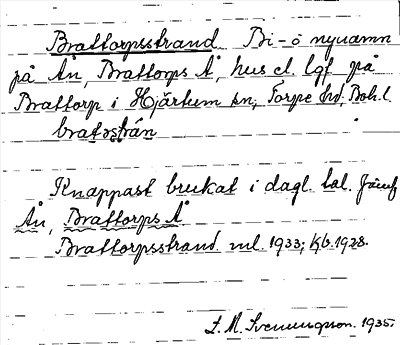 Brattorpsstrand Bi- o nynamn
på Ån, Brattorps Å, hus el. lgf på
Brattorp i Hjärtum sn, Torpe hd, Boh.l.
Knappast brukat i dagl. tal. Jämf
Ån, Brattorps Å
Brattorpsstrand ml. 1933; Kb. 1928.
S. M. Svenungsson. 1935.